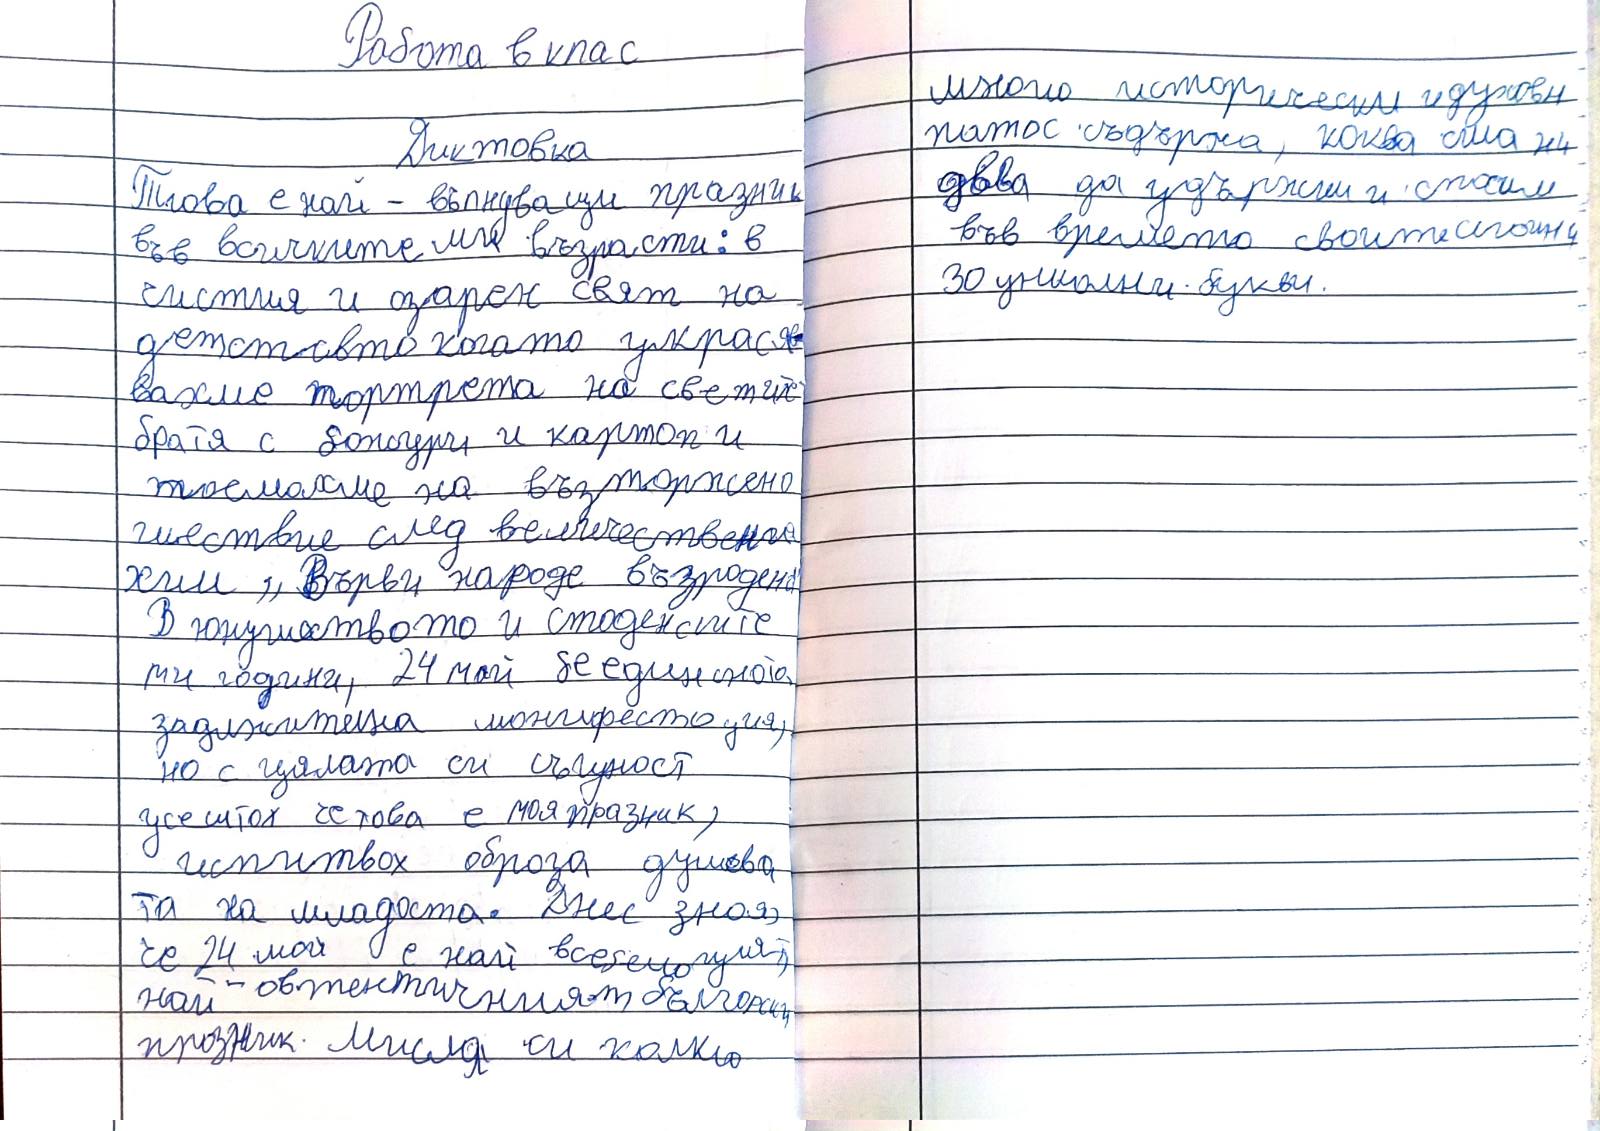 Работа в клас
Диктовка
Това е най - вълнуващи празник
във всичките ми възрасти: в
чистия и озарен свят на
детстсвто когато украсяв
вахме портрета на светий
братя с божури и картон и
поемахме на възторжено
шествие след величествения
химн „Върви народе възродени
В юнушеството и стоденсите
ми години, 24 май бе единсиота
задлжителна монифестоция,
но с цялата си същност
усештох че това е моя празник,
испитвох оброза душева
та на младоста. Днес зноя,
че 24 мой е най всебългоция,
най - овтентичният български
празник. Мисля си колко
много исторически и духовн
патос съдържа, каква сила ни
двва да удържим и спасим
във времето своите си
30 уникални букви.